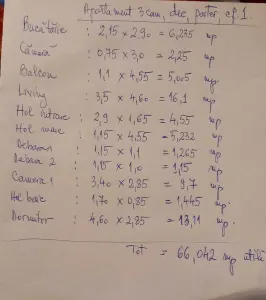 Apartament 3 cam, dec, parter cf. 1.
Bucătărie : 2,15 × 2,90 = 6,235 mp
Cămară : 0,75 × 3,0 = 2,25 mp
Balcon : 1,1 × 4,55 = 5,005 mp
Living : 3,5 × 4,60 = 16,1 mp
Hol intrare : 2,9 × 1,65 = 4,55 mp
Hol mare : 1,15 × 4,55 = 5,232 mp
Debara 1 : 1,15 × 1,1 = 1,265 mp
Debara 2 : 1,15 × 1,0 = 1,15 mp
Camera 1 : 3,40 × 2,85 = 9,7 mp
Hol baie : 1,70 × 0,85 = 1,445 mp.
Dormitor : 4,60 × 2,85 = 13,11 mp.
Tot = 66,042 mp utili